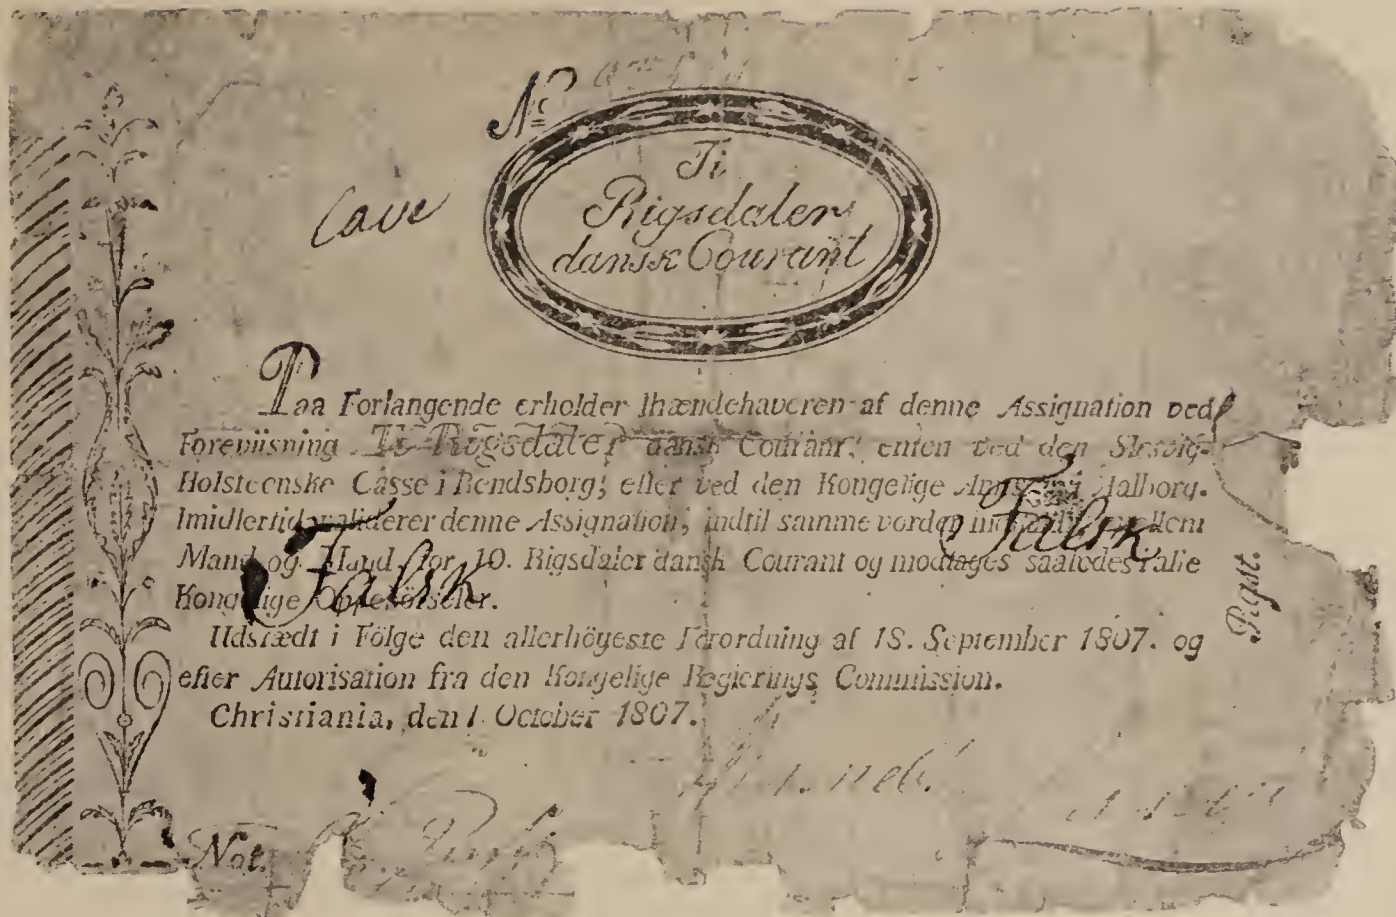 No
Ti
Rigsdaler
dansk Courant
Cave
Paa Forlangende erholder Ihændehaveren af denne Assignation ved
Foreviisning Ti Rigsdaler dansk Courant, enten ved den Slesvig-
Holsteenske Casse i Rendsborg, eller ved den Kongelige i Aalborg.
Imidlertid validerer denne Assignation, indtil samme vorder mellem
Mand og Mand for 10. Rigsdaler dansk Courant og modtages saaledes i alle
Kongelige Oppebörseler.
Falsk
Falsk
Udstædt i Fölge den allerhöyeste Forordning af 18. September 1807. og
efter Autorisation fra den Kongelige Regierings Commission.
Christiania, den 1 October 1807.
Rigst.
Not.